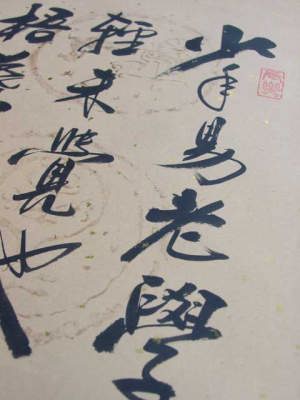 少年易老學
輕未覺池
梧葉